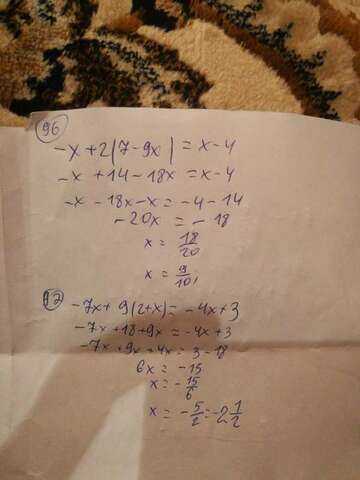 96
-x+2(7-9x)=x-4
-x+14-18x=x-4
-x-18x-x=-4-14
-20x=-18
x=18/20
x=9/10,
97
-7x+9(2+x)=-4x+3
-7x+18+9x=-4x+3
-7x+9x+4x=3-18
6x=-15
x=-15/6
x=-5/2=-2 1/2